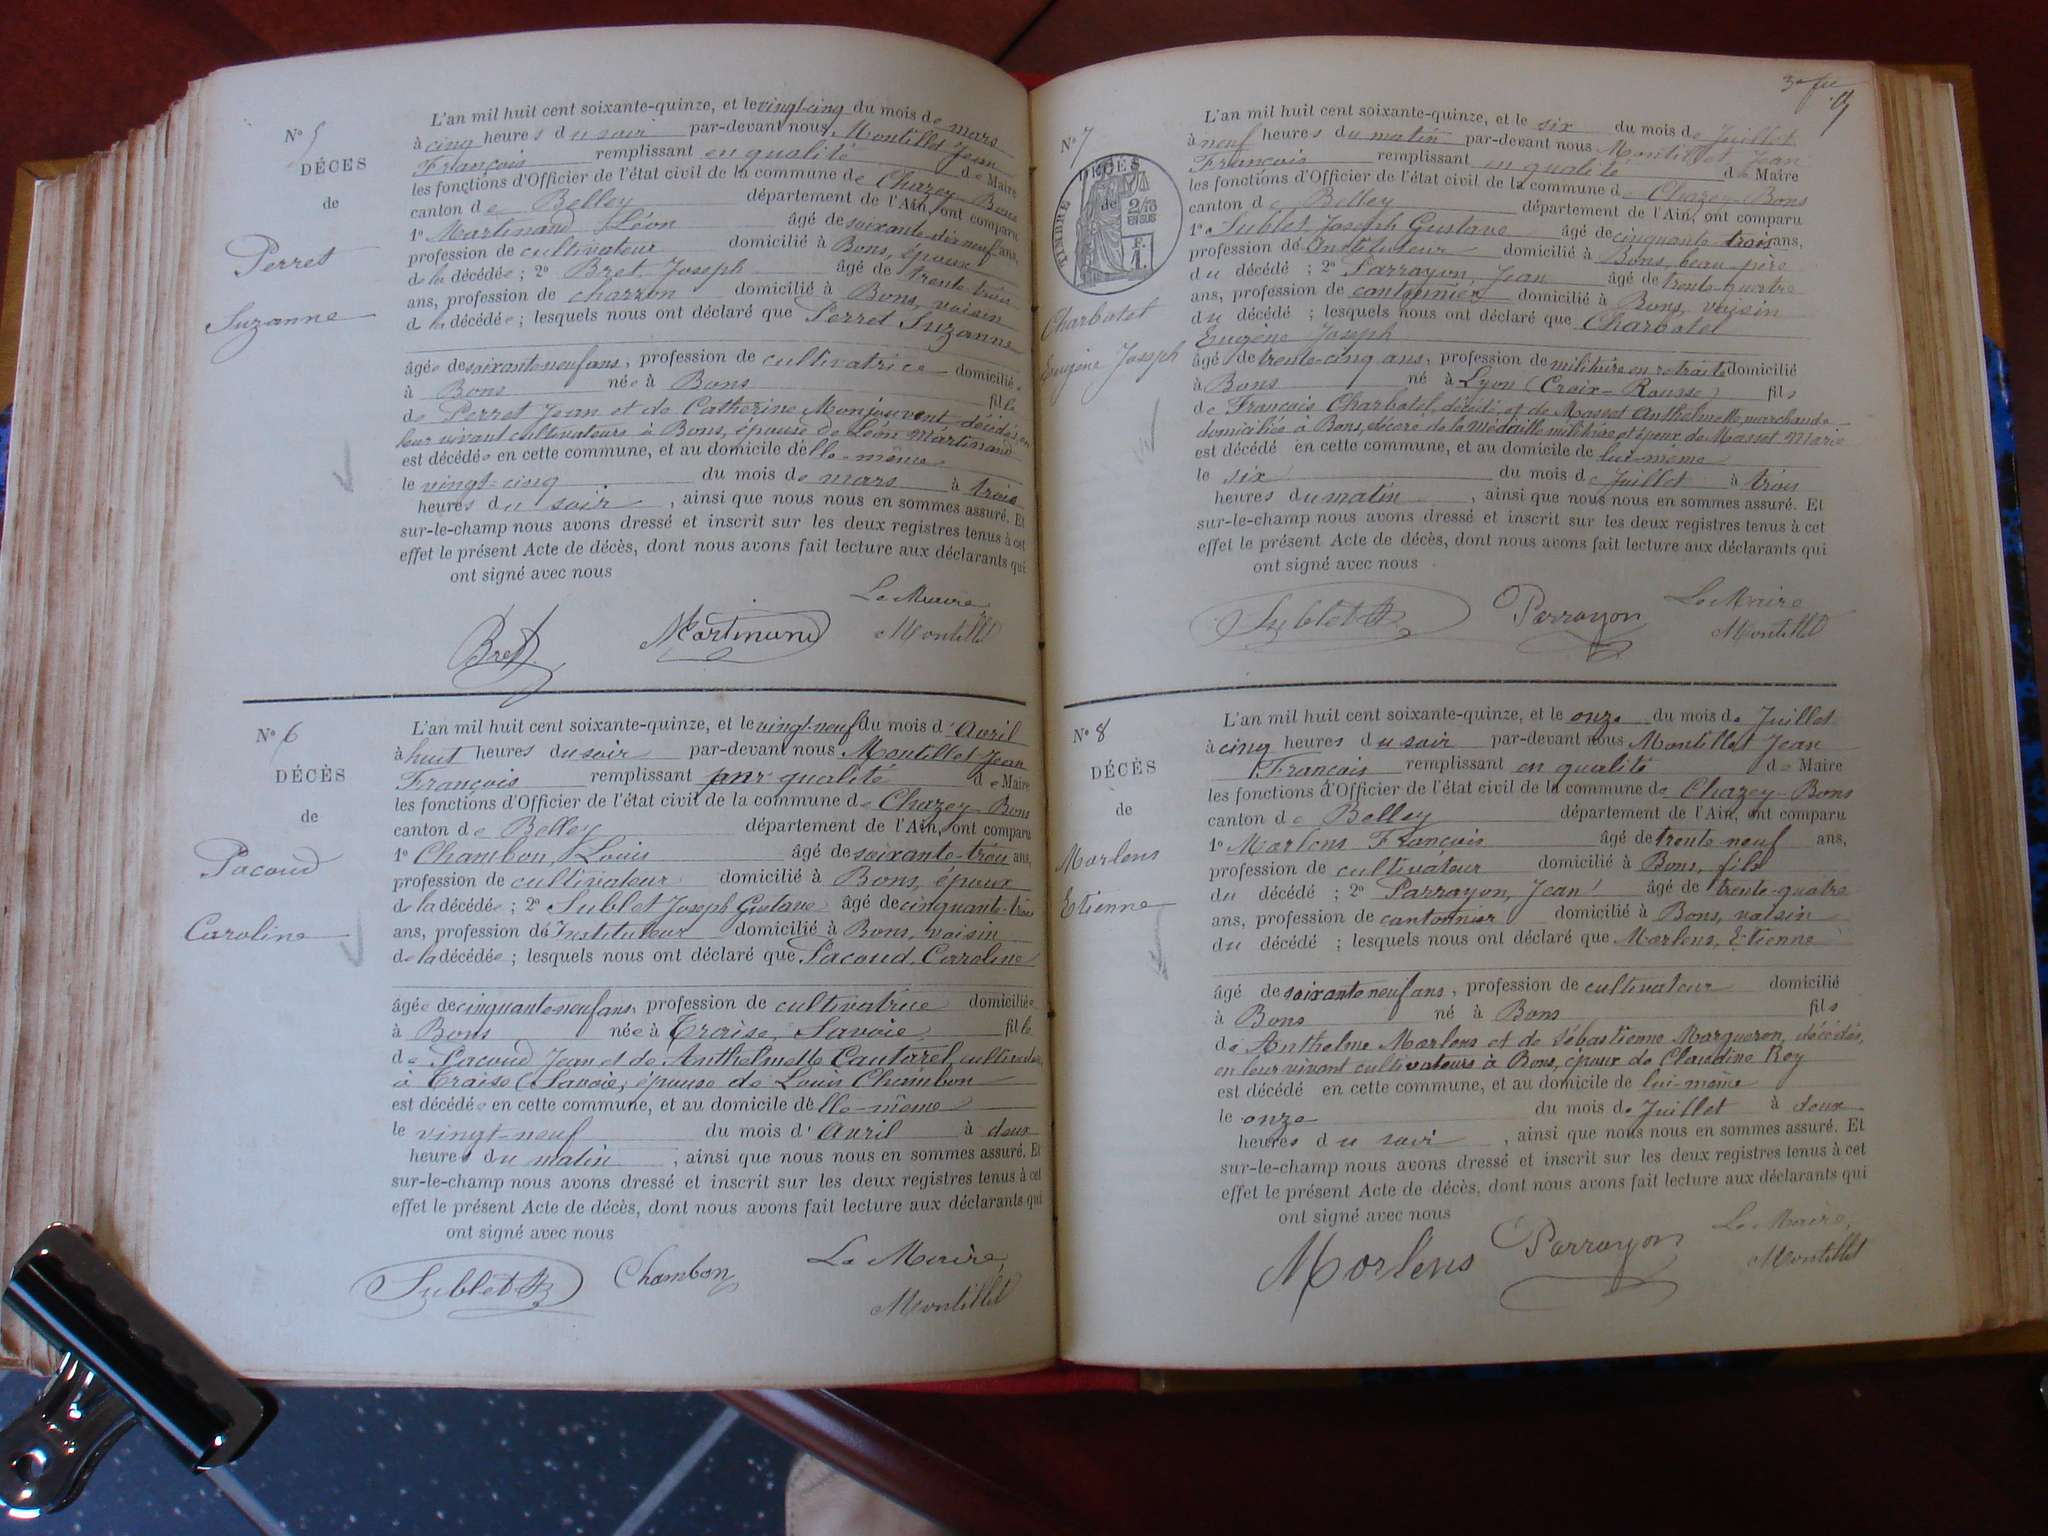 N° 5
DÉCES
de
Perret
Suzanne
L'an mil huit cent soixante-quinze, et le vingt-cinq du mois de mars
à cinq heures du soir par-devant nous Montillet Jean
François remplissant en qualité de Maire
les fonctions d'Officier de l'état civil de la commune de Chazey-Bons
canton de Belley département de l'Ain, ont comparu
1° Martinand Léon âgé de soixante-dix-neuf ans,
profession de cultivateur domicilié à Bons, époux
de la décédée ; 2° Bret Joseph âgé de trente-trois
ans, profession de charron domicilié à Bons, voisin
de la décédée ; lesquels nous ont déclaré que Perret Suzanne
âgée de soixante-neuf ans, profession de cultivatrice domiciliée
à Bons née à Bons fille
de Perret Jean et de Catherine Monjouvent décédés, en
leur vivant cultivateurs à Bons, épouse de Léon Martinand
est décédée en cette commune, et au domicile d'elle-même
le vingt-cinq du mois de mars à trois
heures du soir, ainsi que nous nous en sommes assuré. Et
sur-le-champ nous avons dressé et inscrit sur les deux registres tenus à cet
effet le présent Acte de décès, dont nous avons fait lecture aux déclarants qui
ont signé avec nous
Le Maire
Bret Martinand Montillet
N° 6
DÉCÈS
de
Pacoud
Caroline
L'an mil huit cent soixante-quinze, et le vingt-neuf du mois d'Avril
à huit heures du soir par-devant nous Montillet Jean
François remplissant qualité de Maire
les fonctions d'Officier de l'état civil de la commune de Chazey-Bons
canton de Belley département de l'Ain, ont comparu
1° Chambon, Louis âgé de soixante-trois ans,
profession de cultivateur domicilié à Bons, époux
de la décédée ; 2° Sublet Joseph Gustave âgé de cinquante-trois
ans, profession de Instituteur domicilié à Bons, voisin
de la décédée ; lesquels nous ont déclaré que Pacoud, Caroline
âgée de cinquante-neuf ans, profession de cultivatrice domiciliée
à Bons née à Traise, Savoie, fille
de Pacoud Jean et de Anthelmette Cautarel, cultivateurs
à Traise (Savoie, épouse de Louis Chambon
est décédée en cette commune, et au domicile d'elle-même
le vingt-neuf du mois d'Avril à deux
heures du matin, ainsi que nous nous en sommes assuré. Et
sur-le-champ nous avons dressé et inscrit sur les deux registres tenus à cet
effet le présent Acte de décès, dont nous avons fait lecture aux déclarants qui
ont signé avec nous
Sublet Chambon Le Maire,
Montillet
3e
N° 7
DÉCÈS
de
TIMBRE
2/10
EN SUS
1 F.
Charbotel
Eugène Joseph
L'an mil huit cent soixante-quinze, et le six du mois de Juillet
à neuf heures du matin par-devant nous Montillet Jean
François remplissant en qualité de Maire
les fonctions d'Officier de l'état civil de la commune de Chazey-Bons
canton de Belley département de l'Ain, ont comparu
1° Sublet Joseph Gustave âgé de cinquante-trois ans,
profession de Instituteur domicilié à Bons, beau-père
du décédé ; 2° Parrayon, Jean âgé de trente-quatre
ans, profession de cantonnier domicilié à Bons, voisin
du décédé ; lesquels nous ont déclaré que Charbotel
Eugène Joseph
âgé de trente-cinq ans, profession de militaire en retraite domicilié
à Bons né à Lyon (Croix-Rousse) fils
de François Charbotel, décédé, et de Masset Anthelmette, marchande
domiciliée à Bons, décoré de la Médaille militaire et époux de Massot Marie
est décédé en cette commune, et au domicile de lui-même
le six du mois de Juillet à trois
heures du matin, ainsi que nous nous en sommes assuré. Et
sur-le-champ nous avons dressé et inscrit sur les deux registres tenus à cet
effet le présent Acte de décès, dont nous avons fait lecture aux déclarants qui
ont signé avec nous
Sublet Parrayon Le Maire
Montillet
N° 8
DÉCÈS
de
Morlens
Etienne
L'an mil huit cent soixante-quinze, et le onze du mois de Juillet
à cinq heures du soir par-devant nous Montillet Jean
François remplissant en qualité de Maire
les fonctions d'Officier de l'état civil de la commune de Chazey-Bons
canton de Belley département de l'Ain, ont comparu
1° Morlens François âgé de trente neuf ans,
profession de cultivateur domicilié à Bons, fils
du décédé ; 2° Parrayon, Jean âgé de trente-quatre
ans, profession de cantonnier domicilié à Bons, voisin
du décédé ; lesquels nous ont déclaré que Morlens, Etienne
âgé de soixante neuf ans, profession de cultivateur domicilié
à Bons né à Bons fils
de Anthelme Morlens et de Sébastienne Margueron, décédés,
en leur vivant cultivateurs à Bons, époux de Claudine Rey
est décédé en cette commune, et au domicile de lui-même
le onze du mois de Juillet à deux
heures du soir, ainsi que nous nous en sommes assuré. Et
sur-le-champ nous avons dressé et inscrit sur les deux registres tenus à cet
effet le présent Acte de décès, dont nous avons fait lecture aux déclarants qui
ont signé avec nous
Morlens Parrayon Le Maire,
Montillet